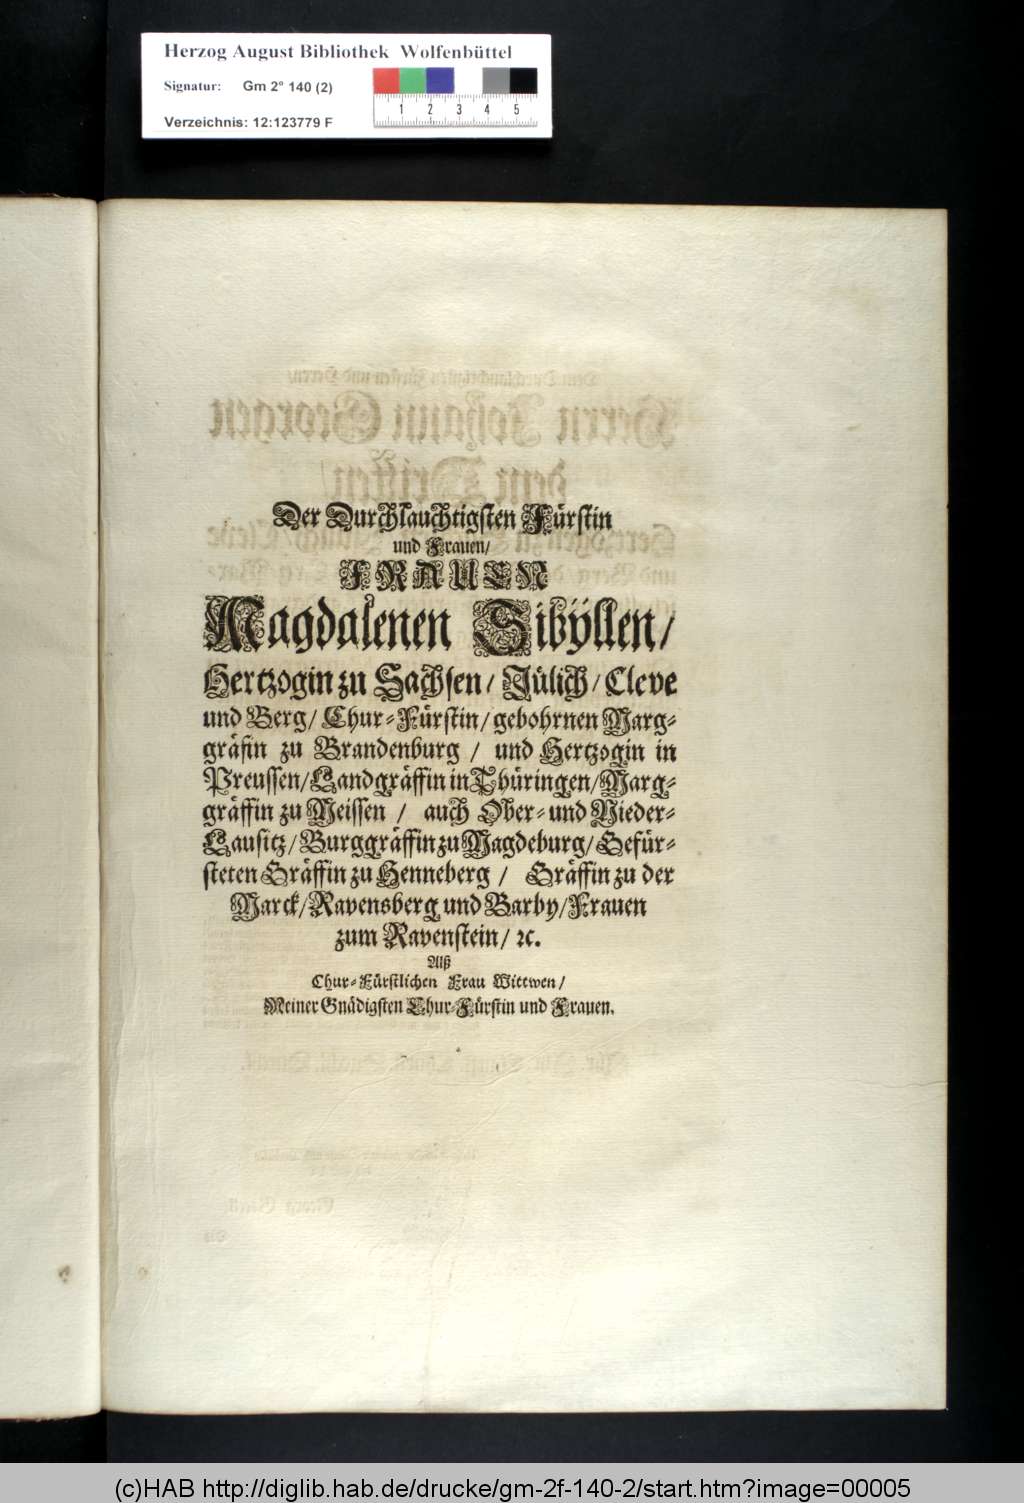 Herzog August Bibliothek Wolfenbüttel
Signatur: Gm 2° 140 (2)
1 2 3 4 5
Verzeichnis: 12:123779 F
Der Durchlauchtigsten Fürstin
und Frauen/
FRAUEN
Magdalenen Sibÿllen/
Hertzogin zu Sachsen/ Jülich/ Cleve
und Berg/ Chur-Fürstin/ gebohrnen Marg-
gräfin zu Brandenburg / und Hertzogin in
Preussen/Landgräffin in Thüringen/Marg-
gräffin zu Meissen / auch Ober- und Nieder-
Lausitz/ Burggräffin zu Magdeburg/ Gefür-
steten Gräffin zu Henneberg / Gräffin zu der
Marck/Ravensberg und Barby/Frauen
zum Ravenstein/ ꝛc.
Alß
Chur-Fürstlichen Frau Wittwen/
Meiner Gnädigsten Chur-Fürstin und Frauen.
(c)HAB http://diglib.hab.de/drucke/gm-2f-140-2/start.htm?image=00005